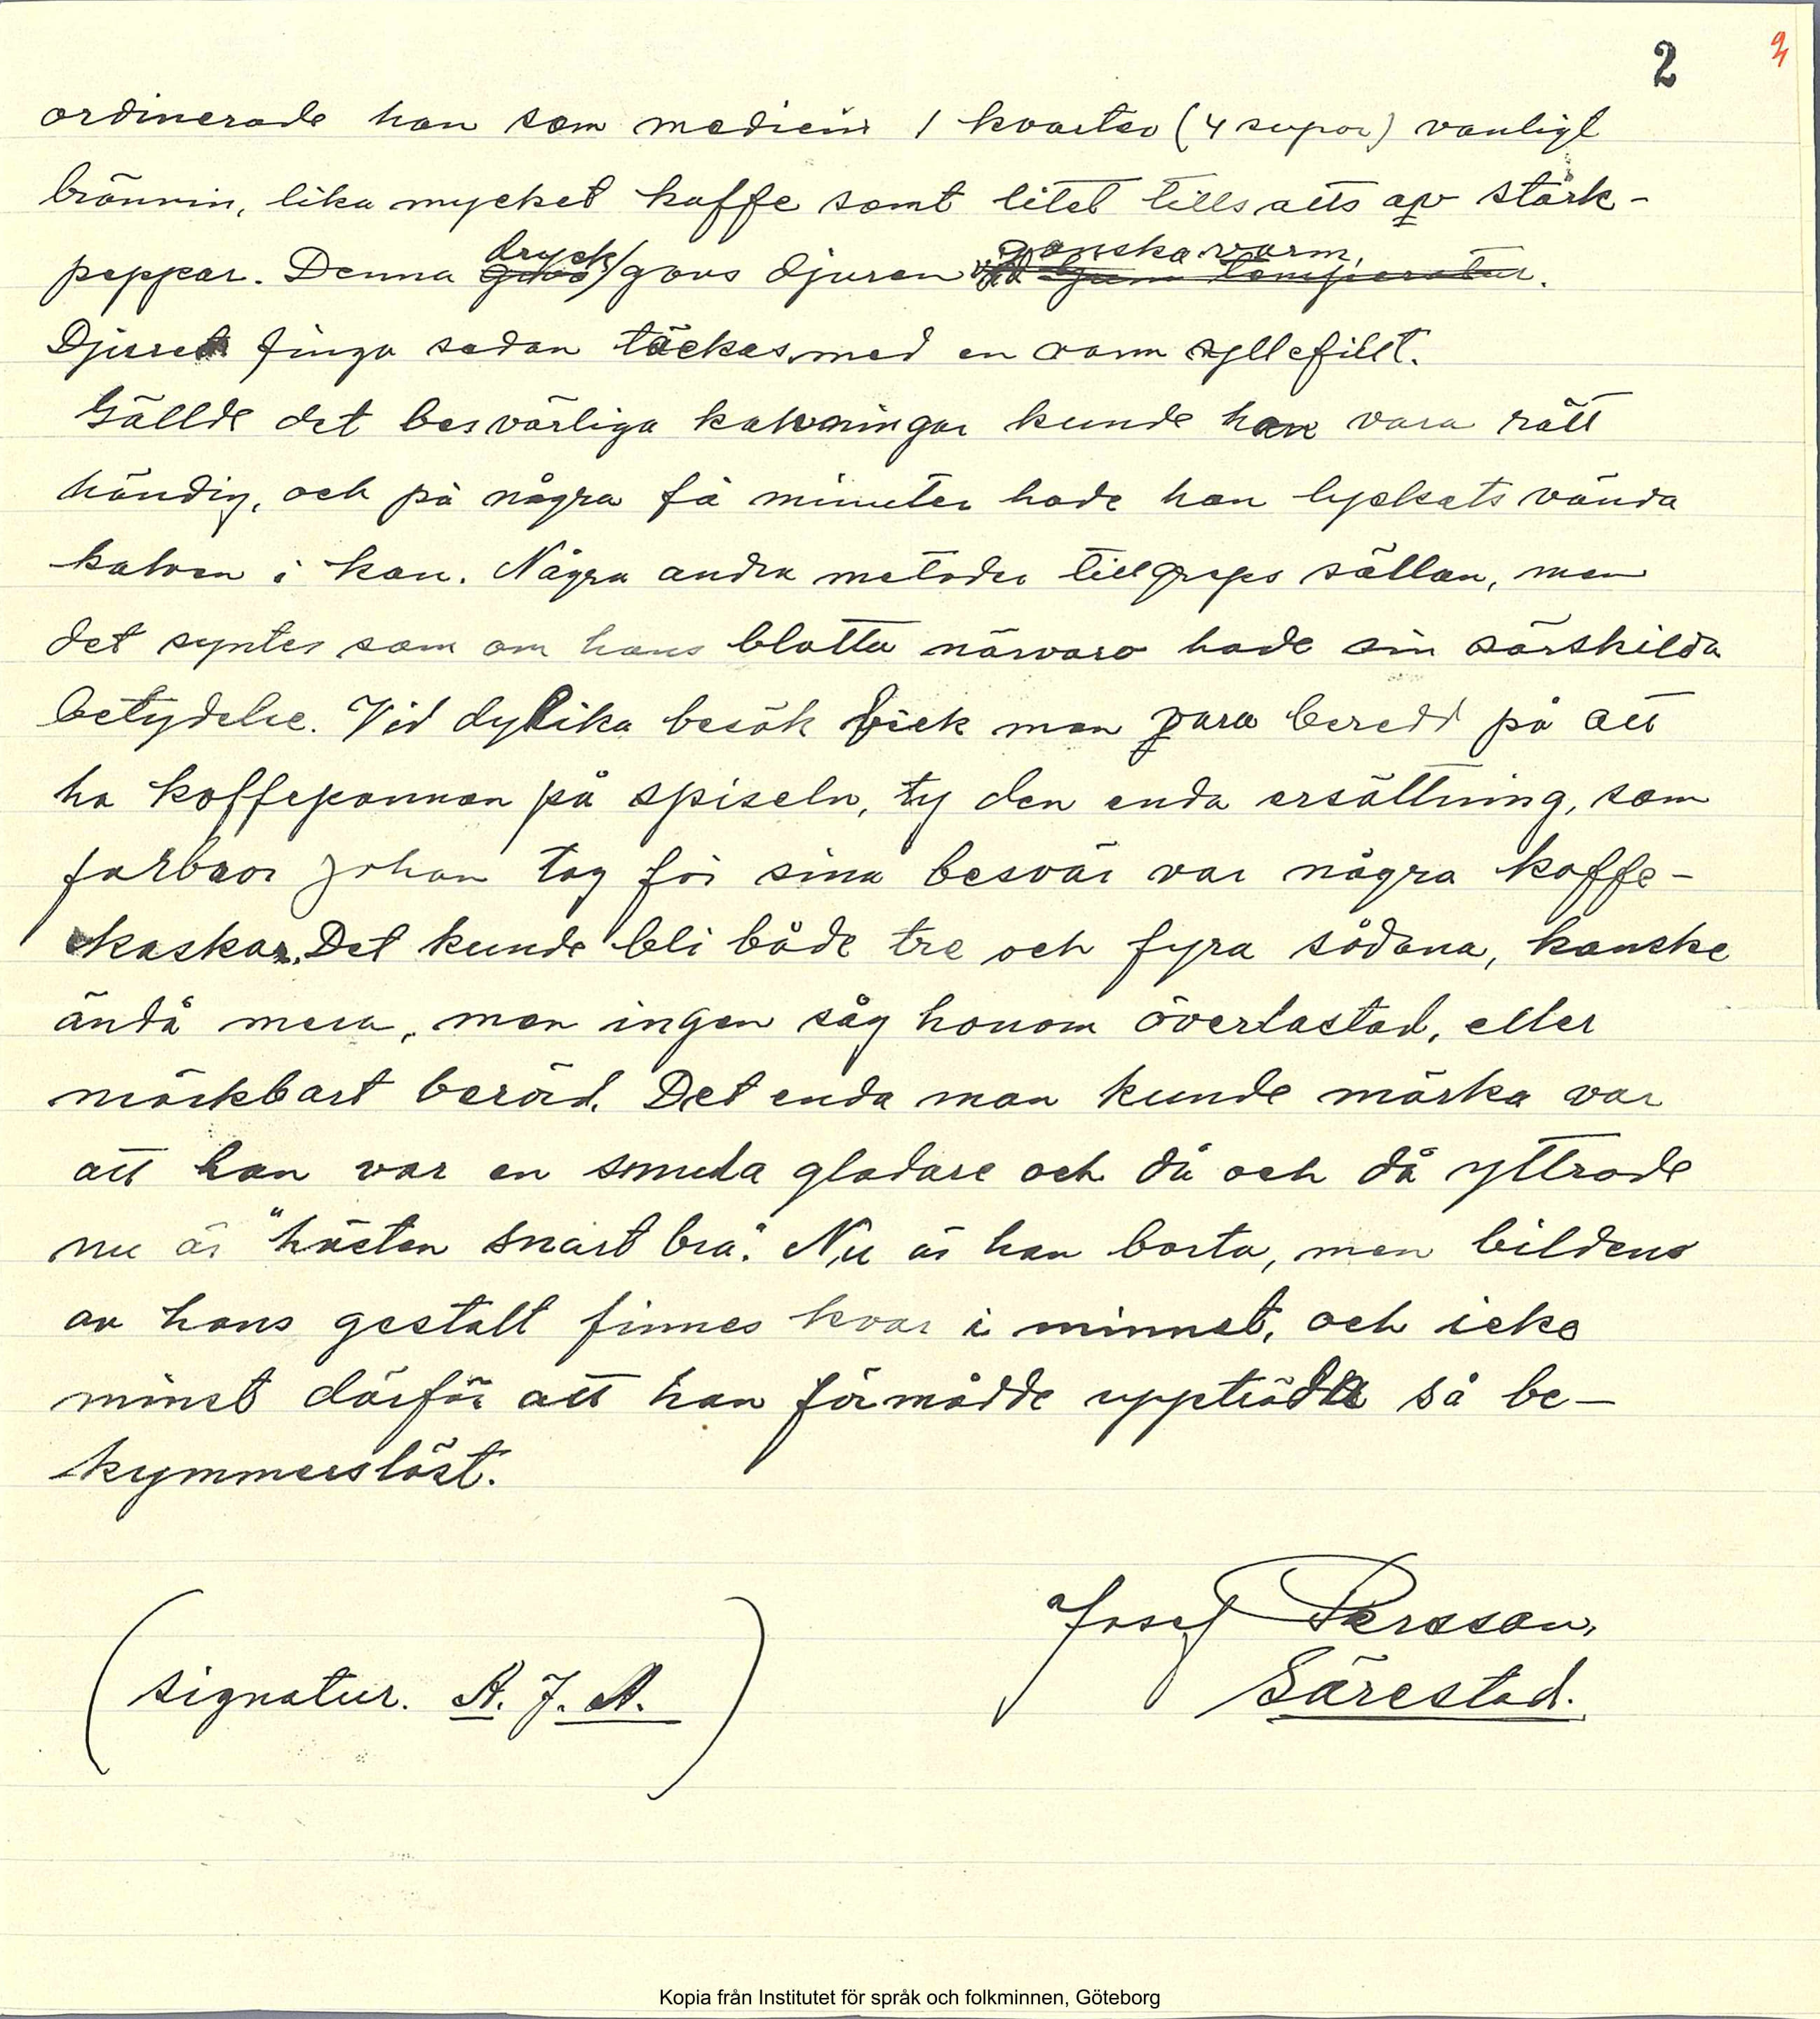 2
ordinerade han som medicin 1 kvarter (4 supar) vanligt
brännvin, lika mycket kaffe samt litet tillsatts av stark-
peppar. Denna dryck gavs djuren ganska varm.
Djuret finga sedan täckas med en varm yllefillt.
Gällde det besvärliga kalvningar kunde han vara rätt
händig, och på några få minuter hade han lyckats vända
kalven i kon. Några andra metoder tillgreps sällan, men
det syntes som om hans blotta närvaro hade sin särskilda
betydelse. Vid dylika besök fick man vara beredd på att
ha kaffepannan på spiseln, ty den enda ersättning, som
farbror Johan tog för sina besvär var några kaffe-
kaskar. Det kunde bli både tre och fyra sådana, kanske
ändå mera, men ingen såg honom överlastad, eller
märkbart berörd. Det enda man kunde märka var
att han var en smula gladare och då och då yttrade
nu är "hästen snart bra". Nu är han borta, men bilden
av hans gestalt finnes kvar i minnet, och icke
minst därför att han förmådde uppträda så be-
kymmerslöst.
Josef Persson,
Särestad.
(signatur. A. J. A.)
Kopia från Institutet för språk och folkminnen, Göteborg